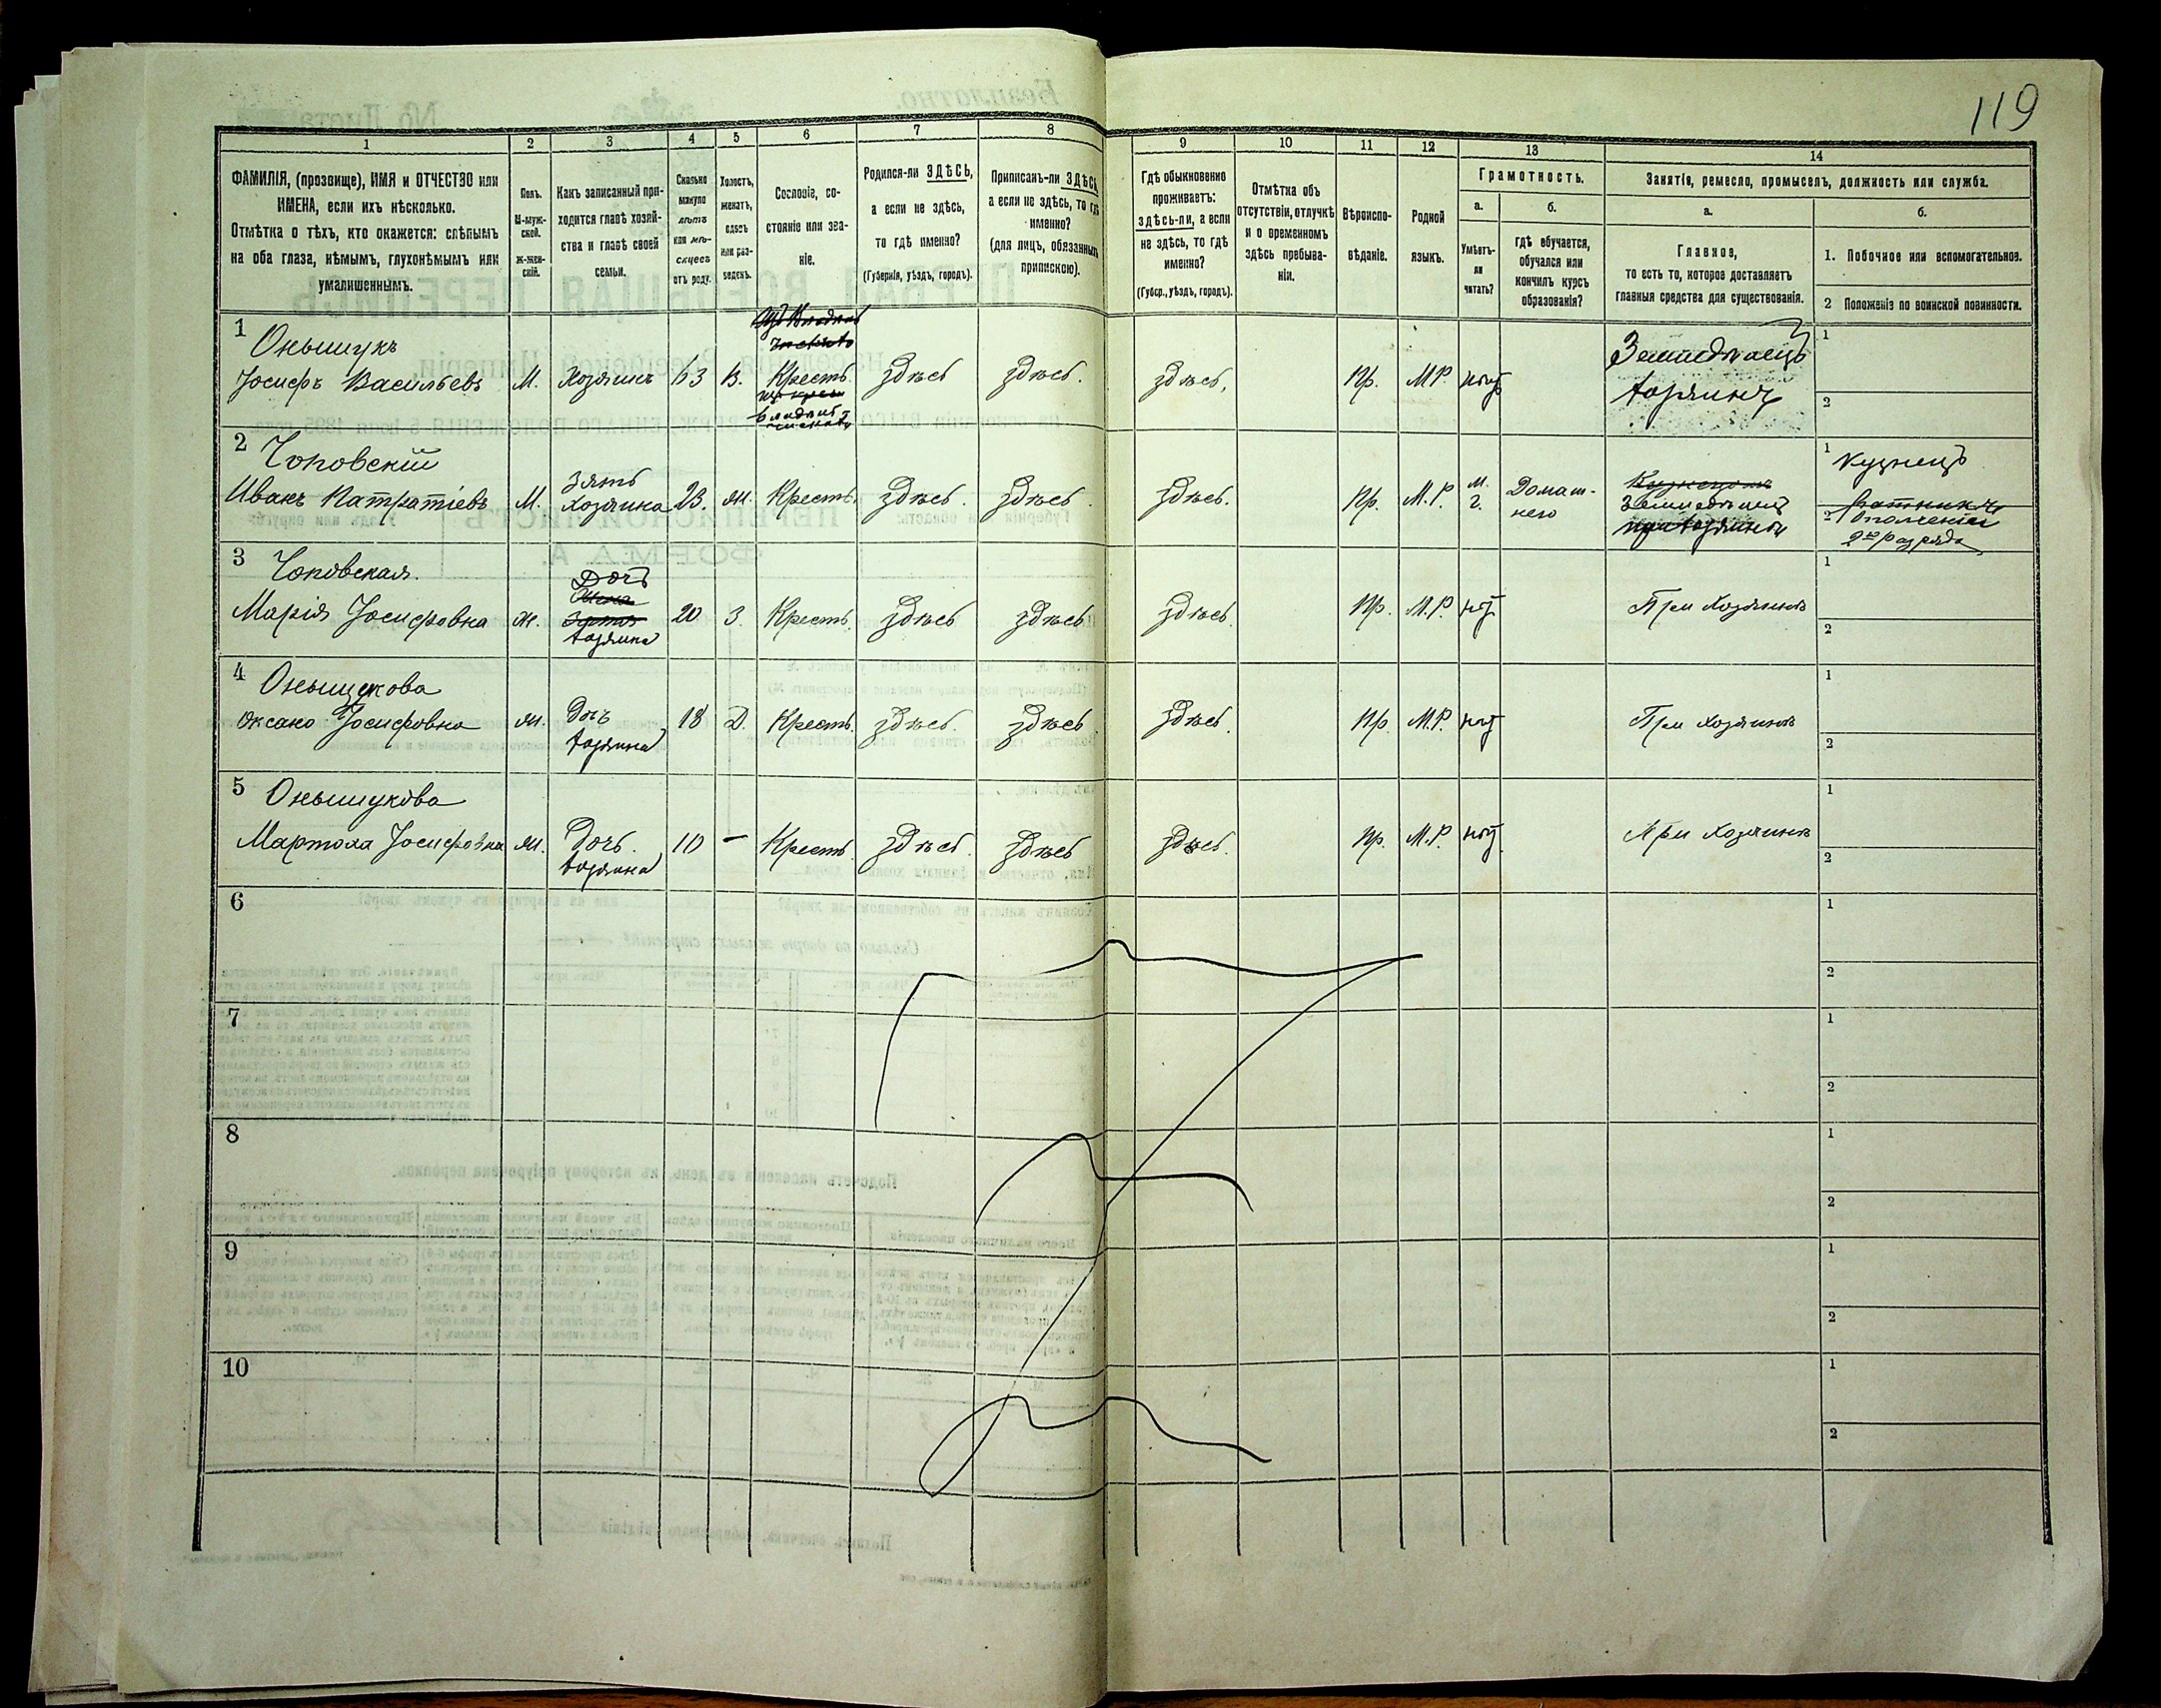 119
1
2
3
4
5
6
7
8
9
10
11
12
13
14
ФАМИЛІЯ, (прозвище), ИМЯ и ОТЧЕСТВО или
ИМЕНА, если ихъ нѣсколько.
Отмѣтка о тѣхъ, кто окажется: слѣпымъ
на оба глаза, нѣмымъ, глухонѣмымъ или
умалишеннымъ.
Полъ.
М-муж-
ской.
ж-жен-
скій.
Какъ записанный при-
ходится главѣ хозяй-
ства и главѣ своей
семьи.
Сколько
минуло
лѣтъ
или мѣ-
сяцевъ
отъ роду.
Холостъ,
женатъ,
вдовъ
или раз-
веденъ.
Сословіе, со-
стояніе или зва-
ніе.
Родился-ли ЗДѢСЬ,
а если не здѣсь,
то гдѣ именно?
(Губернія, уѣздъ, городъ).
Приписанъ-ли ЗДѢСЬ,
а если не здѣсь, то гдѣ
именно?
(для лицъ, обязанныхъ
припискою).
Гдѣ обыкновенно
проживаетъ:
здѣсь-ли, а если
не здѣсь, то гдѣ
именно?
(Губер., уѣздъ, городъ).
Отмѣтка объ
отсутствіи, отлучкѣ
и о временномъ
здѣсь пребыва-
ніи.
Вѣроиспо-
вѣданіе.
Родной
языкъ.
Грамотность.
а.
б.
Умѣетъ-
ли
читать?
гдѣ обучается,
обучался или
кончилъ курсъ
образованія?
Занятіе, ремесло, промыселъ, должность или служба.
а.
б.
Главное,
то есть то, которое доставляетъ
главныя средства для существованія.
1. Побочное или вспомогательное.
2 Положеніе по воинской повинности.
1
Онышукъ
Іосифъ Васильевъ М. Хозяинъ 63 В. Крестъ. здѣсь здѣсь. здѣсь, Пр. М.Р. нѣтъ
Земледѣлецъ
хозяинъ
1
2
2
Чоповскій
Иванъ Патратіевъ М. Зять
хозяина 23. ж. Крестъ. здѣсь. здѣсь. здѣсь. Пр. М.Р. М.
Г. Домаш-
него
1 Кузнецъ
2 Ратникъ
Ополченія
2го разряда
3
Чоповская.
Марія Іосифовна ж. Дочь
хозяина 20 З. Крестъ. здѣсь здѣсь здѣсь. Пр. М.Р. нѣтъ При хозяинѣ
1
2
4
Онышукова
Оксана Іосифовна ж. Дочь
хозяина 18 Д. Крестъ. здѣсь. здѣсь здѣсь. Пр. М.Р. нѣтъ При хозяинѣ
1
2
5
Онышукова
Мартоха Іосифовна ж. Дочь.
хозяина 10 – Крестъ. здѣсь здѣсь здѣсь. Пр. М.Р. нѣтъ При хозяинѣ
1
2
6
1
2
7
1
2
8
1
2
9
1
2
10
1
2